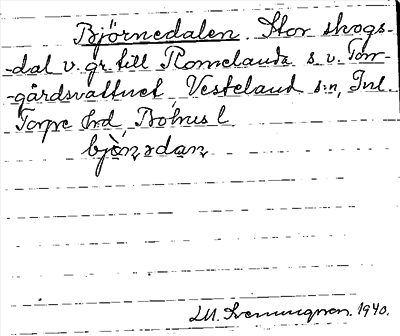 Björnedalen. Stor skogs-
-dal v. gr. till Romelanda s. v. Torr-
-gårdsvattnet Vesteland s:n, Inl.
Torpe hd, Bohus l
bjö̀ṇədaṇ
1940.